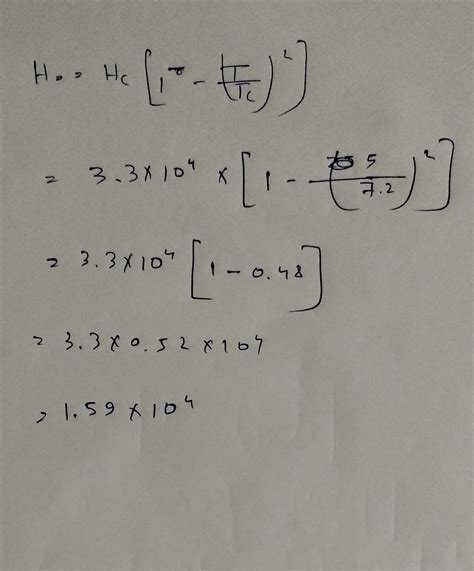 H₀ = H_C [1 - (T/T_C)²]
= 3.3×10⁴ × [1 - (5/7.2)²]
= 3.3×10⁴ [1 - 0.48]
= 3.3 × 0.52 × 10⁴
= 1.59 × 10⁴